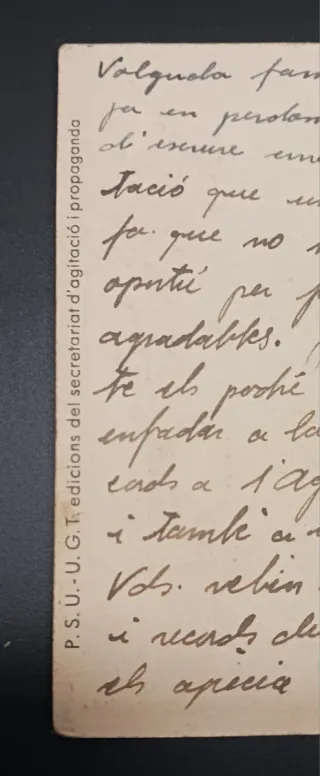 P.S.U.-U.G.T. edicions del secretariat d'agitació i propaganda
Volguda fam
ja en perdon
d'escriure
tació que
fa. que no
oportú per
agradables.
te els podré
enfadar a la
cords a l'Ag
i també a
Vds. rebin
i records de
els apecia